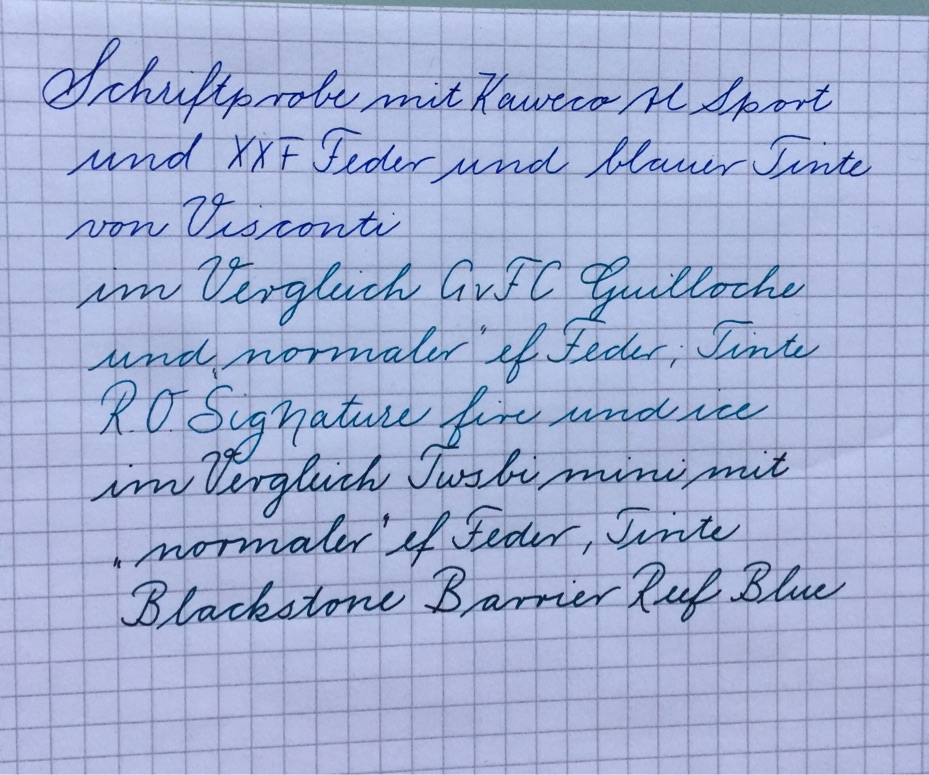 Schriftprobe mit Kaweco Al Sport
und XXF Feder und blauer Tinte
von Visconti
im Vergleich GvFC Guilloche
und „normaler" ef Feder, Tinte
R.O. Signature fire und ice
im Vergleich Twsbi mini mit
„normaler" ef Feder, Tinte
Blackstone Barrier Reef Blue